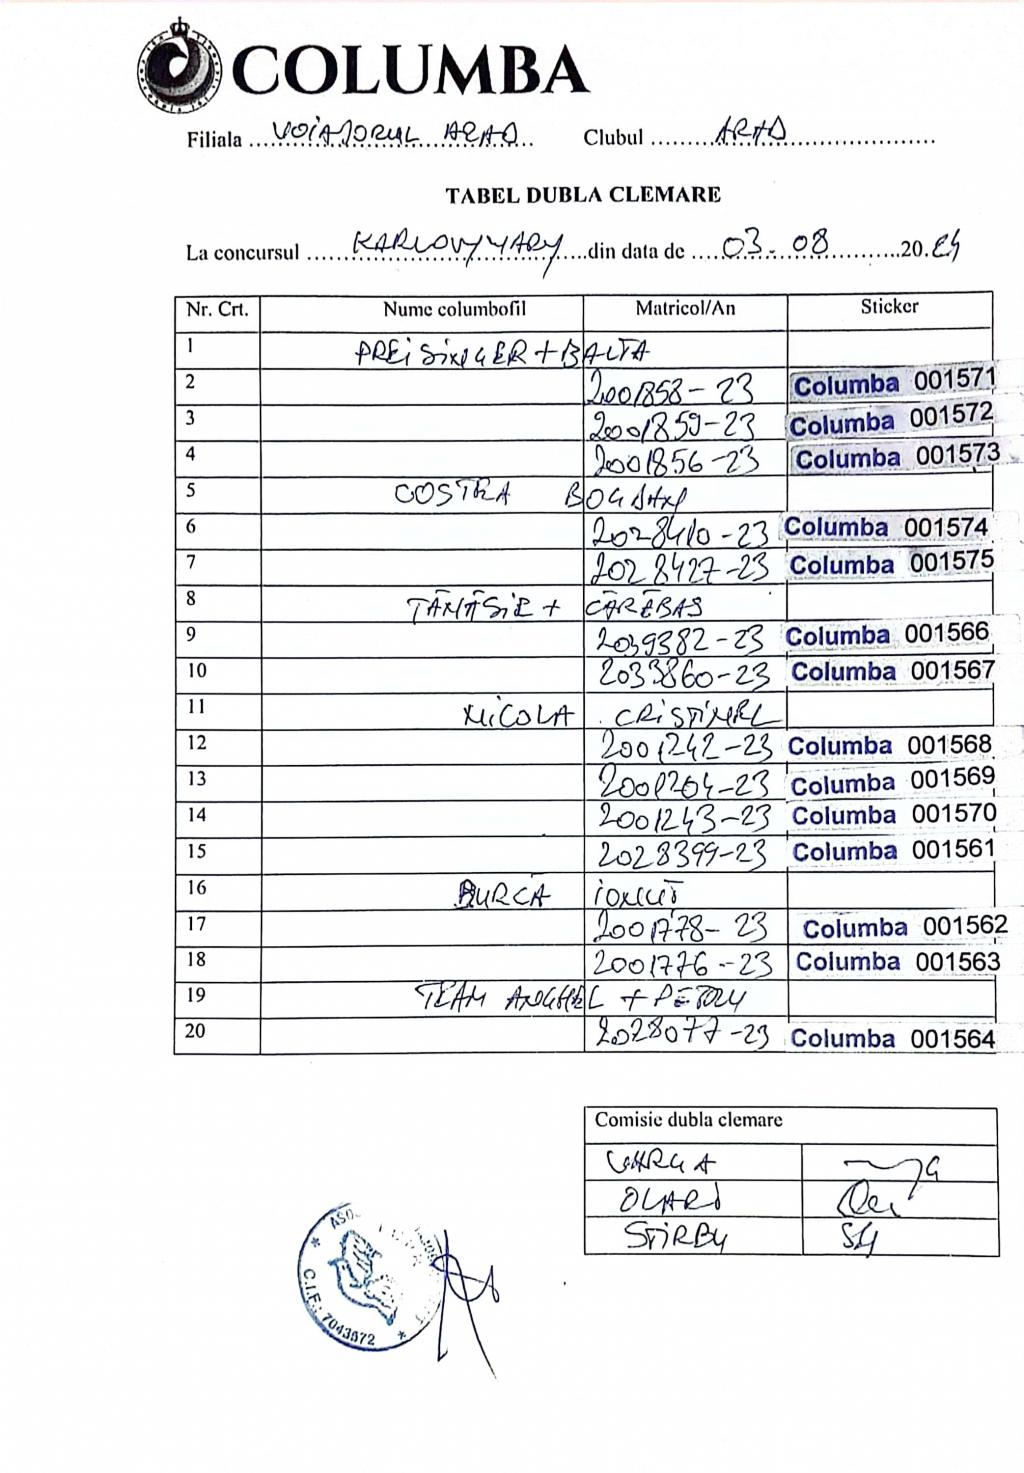 COLUMBA
Filiala VOIAJORUL ARAD Clubul ARAD
TABEL DUBLA CLEMARE
La concursul KARLOVYVARY din data de 03-08 2024
Nr. Crt. Nume columbofil Matricol/An Sticker
1 PREISINGER + BALTA
2 2001858-23 Columba 001571
3 2001859-23 Columba 001572
4 2001856-23 Columba 001573
5 COSTEA BOGDAN
6 2028410-23 Columba 001574
7 2028427-23 Columba 001575
8 TĂNĂSIE + CĂRĂBAS
9 2039382-23 Columba 001566
10 2033860-23 Columba 001567
11 NICOLA CRISTINEL
12 2001242-23 Columba 001568
13 2001204-23 Columba 001569
14 2001243-23 Columba 001570
15 2028399-23 Columba 001561
16 BURCĂ IONUȚ
17 2001778-23 Columba 001562
18 2001776-23 Columba 001563
19 TEAM ANGHEL + PETRU
20 2028077-23 Columba 001564
Comisie dubla clemare
VARGA
OLARU
STIRBU
ASO
C.I.F.: 7043672